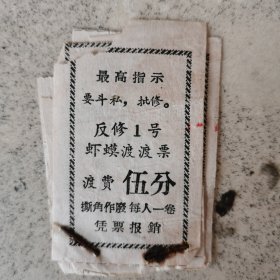 最高指示
要斗私，批修。
反修1号
虾蟆渡渡票
渡费 伍分
撕角作廢每人一卷
凭票报銷